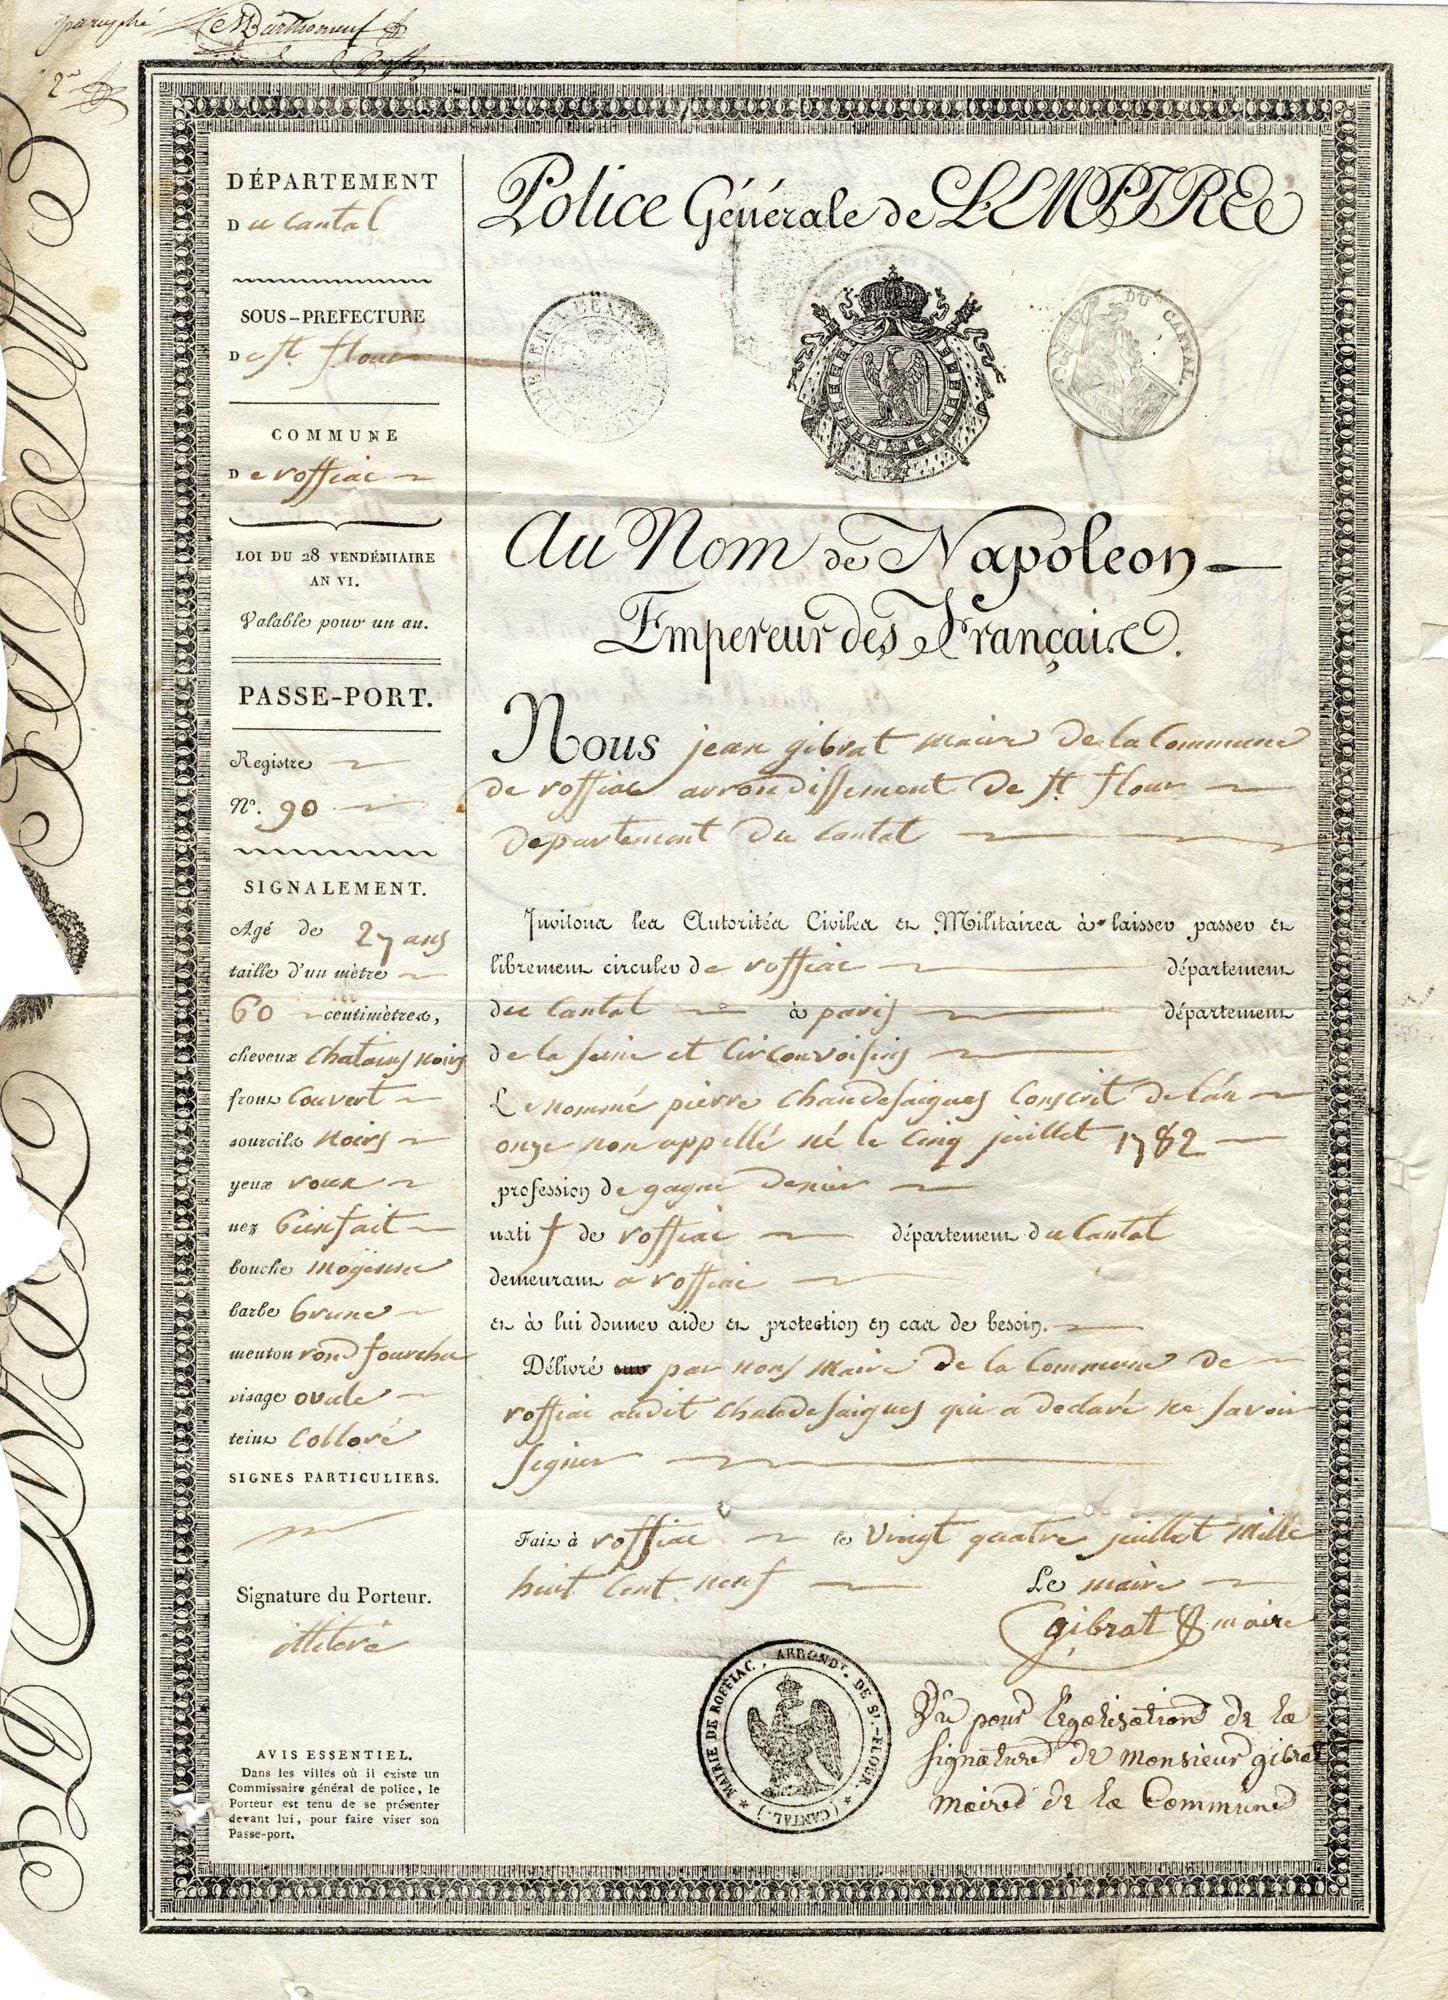 paraphé
2
DÉPARTEMENT
Du Cantal
SOUS-PREFECTURE
De St flour
COMMUNE
De roffiac
LOI DU 28 VENDÉMIAIRE
AN VI.
Valable pour un an.
PASSE-PORT.
Registre
N°. 90
SIGNALEMENT.
Agé de 27 ans
taille d'un mètre
60 centimètres,
cheveux chatains noirs
front couvert
sourcils noirs
yeux roux
nez bien fait
bouche moÿenne
barbe brune
menton rond fourchu
visage ovale
teint colloré
SIGNES PARTICULIERS.
Signature du Porteur.
illiteré
AVIS ESSENTIEL.
Dans les villes où il existe un
Commissaire général de police, le
Porteur est tenu de se présenter
devant lui, pour faire viser son
Passe-port.
Police Générale de L'EMPIRE
TIMBRE A L'EXTR
DU CANTAL.
Au Nom de Napoleon
Empereur des Français.
Nous jean gibrat maire de la Commune
de roffiac arrondissement de St flour
departement du Cantal
Invitons les Autorités Civiles et Militaires à laisser passer et
librement circuler de roffiac département
du Cantal à paris département
de la seine et circonvoisins
Le nommé pierre chaudesaigues conscrit de l'an
onze non appellé né le cinq juillet 1782
profession de gagne denier
natif de roffiac département du Cantal
demeurant a roffiac
et à lui donner aide et protection en cas de besoin.
Délivré sur par nous maire de la Commune de
roffiac audit chaudesaigues qui a declaré ne savoir
signer
Fait à roffiac le vingt quatre juillet mille
huit cent neuf Le maire
gibrat maire
MAIRIE DE ROFFIAC, ARROND.T DE S.T-FLOUR. (CANTAL)
Vu pour légalisation de la
signature de monsieur gibrat
maire de la Commune